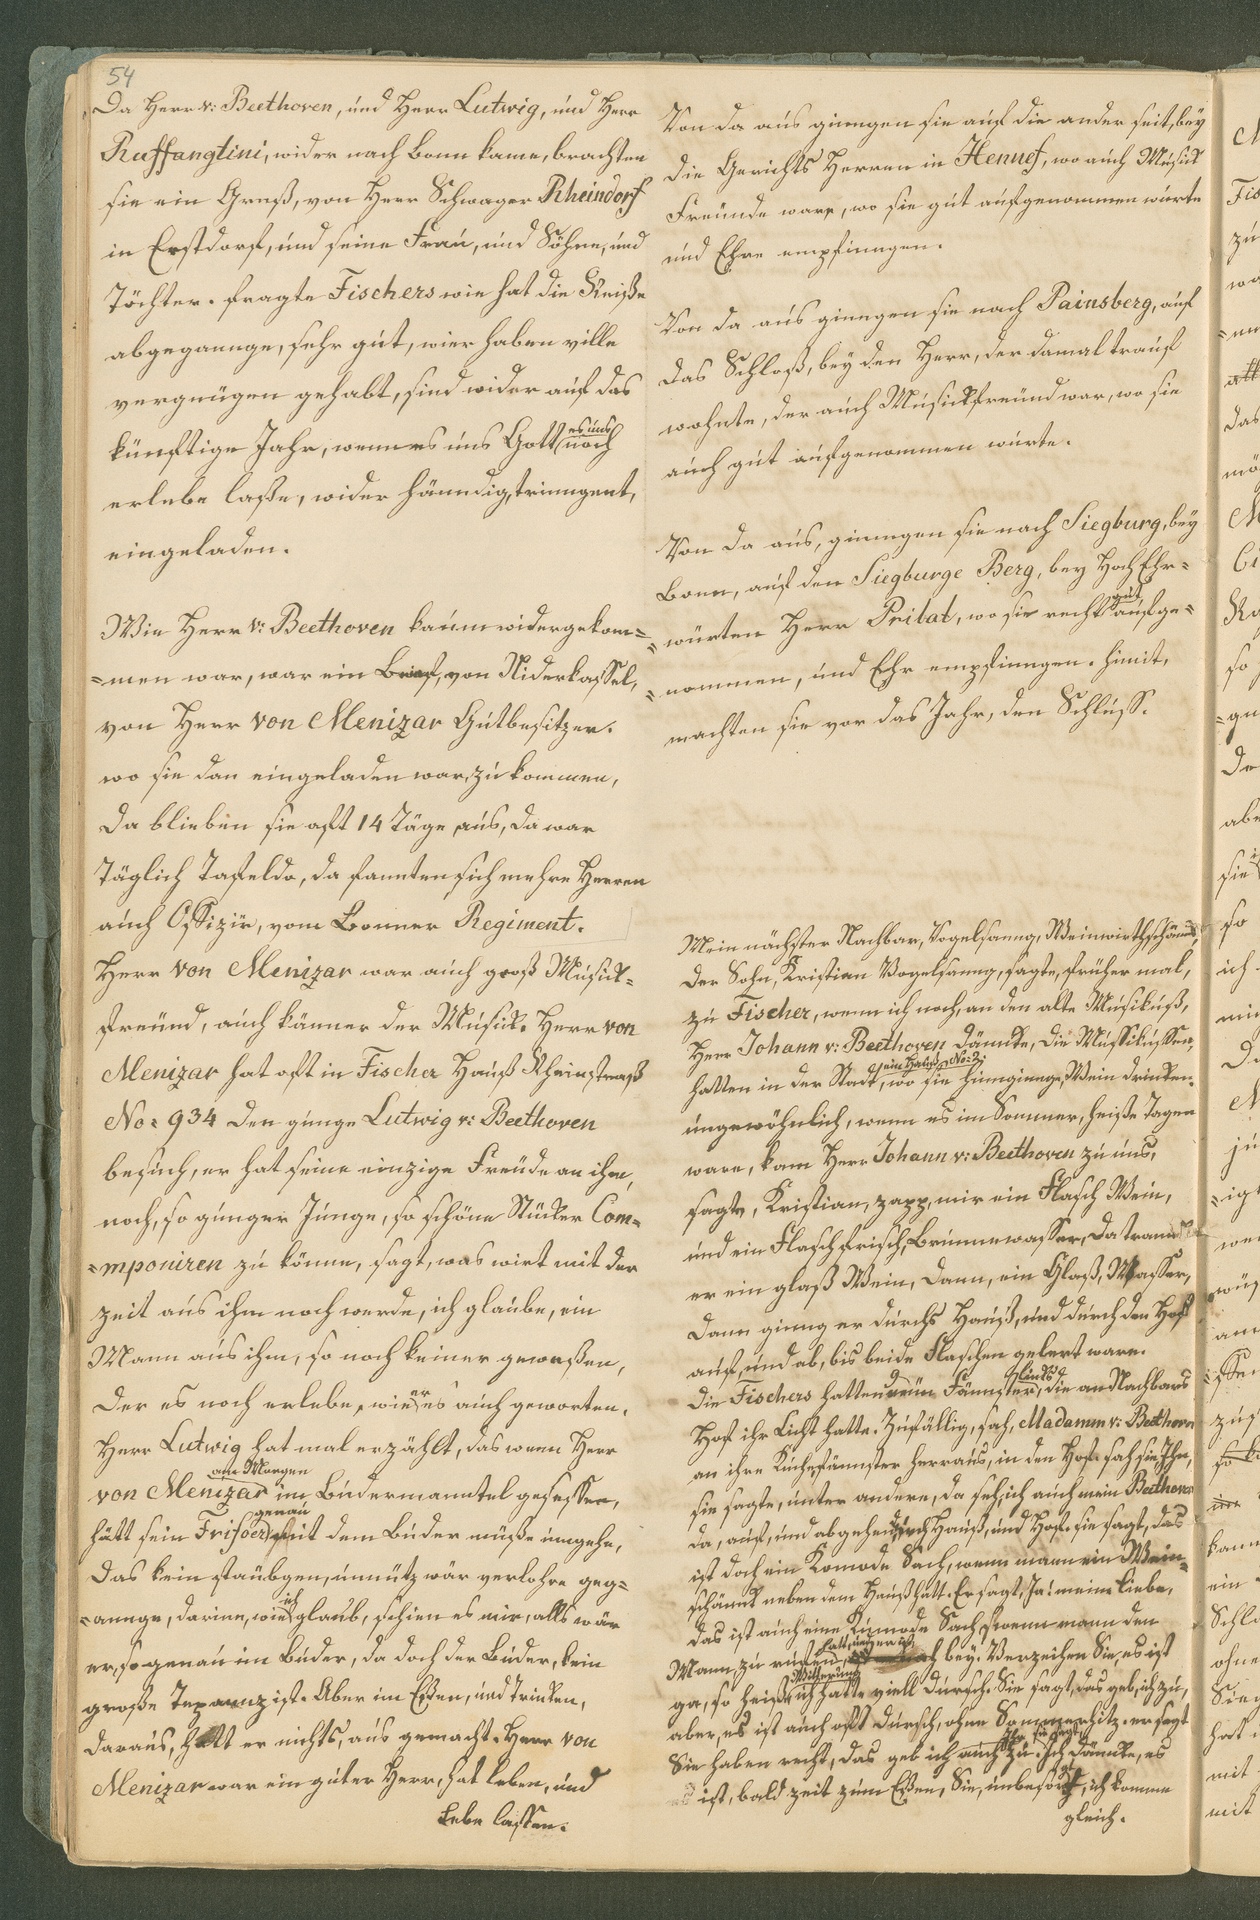 54
Da Herr v: Beethoven, und Herr Lutwig, und Herr
Ruffangtini, wider nach Bonn kame, brachten
sie ein Gruß, von Herr Schwager Rheindorf
in Erstdorf, und seine Frau, und Söhne, und
Töchter. fragte Fischers wie hat die Reiße
abgegannge, sehr gut, wier haben ville
vergnügen gehabt, sind wider auf das
künftige Jahr, wenn es uns Gott noch
es uns
erlebe laße, wider händig, trinngent,
eingeladen.
Wie Herr v: Beethoven kaum widergekom=
=men war, war ein Brief, von Niderkassel,
von Herr von Menizar Gutbesitzer.
wo sie dan eingeladen war, zu kommen,
Da blieben sie oft 14 Täge aus, da war
Täglich Tafeldo, da fannten sich mehre Herren
auch Offizir, vom Bonner Regiment.
Herr von Menizar war auch groß Musick=
freund, auch känner der Musick. Herr von
Menizar hat oft in Fischer Hauß Rheinstraß
No: 934 Den gunge Lutwig v: Beethoven
besuch, er hat seine einzige Freude an ihm,
noch, so gunger Junge, so schöne Stücker Com=
=mponiren zu könne, sagt, was wirt mit der
zeit aus ihm noch werde, ich glaube, ein
Mann aus ihm, so noch keiner geweßen,
Der es noch erlebe, wie er es auch geworten.
Herr Lutwig hat mal erzählt, das wenn Herr
am Morgen
von Menizar im Budermanntel gesessen,
genau
hätt sein Frisöer mit dem Buder müße umgehe,
Das kein staubgen, unnütz wär verlohre geg=
=annge, darinn, wie ich glaub, schien es mir, alls wär
er, so genau im Buder, da doch der Buder, kein
große Tepannz ist. Aber im Eßen, und Trinken,
daraus, hatt er nichts, aus gemacht. Herr von
Menizar war ein guter Herr, hat leben, und
Lebe lassen.
Von da aus ginngen sie auf die ander seit, bey
die Gerichts Herren in Hennef, wo auch Musick
Freunde ware, wo sie gut aufgenommen wurte
und Ehre empfinngen.
Von da aus ginngen sie nach Painsberg, auf
das Schloß, bey den Herr, der damal trauf
wohnte, der auch Musickfreund war, wo sie
auch gut aufgenommen wurte.
Von da aus, ginngen sie nach Siegburg, bey
Bonn, auf den Siegburge Berg, bey HochEhr=
=würten Herr Prilat, wo sie recht gut aufge=
=nommen, und Ehr empfinngen. himit,
machten sie vor das Jahr, den Schluss.
Mein nächster Nachbar, Vogelsanng, Weinwirthschännk,
der Sohn, Kristian Vogelsanng, sagte, früher mal,
zu Fischer, wenn ich noch, an den alte Musikuß,
Herr Johann v: Beethoven dännke, die Mussikussen,
ein Hauß No: 2.
hatten in der Stadt, wo sie hinnginnge, Wein drinken.
ungewöhnlich, wenn es im Sommer, heiße Tagen
ware, kam Herr Johann v: Beethoven zu uns,
sagte, Kristian, zapp, mir ein Flasch Wein,
und ein Flasch frisch, Brunnewasser, da trannk
er ein glaß Wein, dann, ein Glaß, Wasser,
dann ginng er durchs Hauß, und durch den Hoff
auf, und ab, bis beide Flaschen gelert ware.
links
die Fischers hatten Fännster, die an Nachbars
Hof ihr Licht hatte. Zufällig, sah, Madamm v: Beethoven
an ihre Küchefännster herraus, in den Hof. sah sie Ihn,
sie sagte, unter andere, da seh, ich auch mein Beethoven
da, auf, und abgehen, durch Hauß, und Hof. sie sagt, das
ist doch ein Komode Sach, wenn mann ein Wein=
schännk neben dem Hauß hatt. Er sagt, Ja! meine liebe,
das ist auch eine Kumode Sach, wenn mann den
Mann zu rufen hatt, und er ist bey. Verzeihen Sie, es ist
Mitterung
ga, so heiße, ich hatte viell dursch. Sie sagt, das geb, ich zu,
aber, es ist auch oft dursch, ohne Sommerhitz. er sagt
Sie haben recht, das geb ich auch zu. Ich dännke, es
es ist, bald zeit zum Eßen, Sie, unbesorgt, ich komme
gleich.